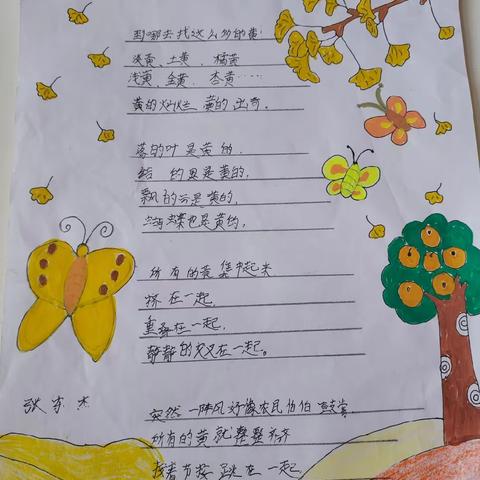 到哪去找这么多的黄
淡黄、土黄、橘黄
浅黄、金黄、杏黄……
黄的灿烂 黄的出奇。
落的叶是黄的.
结 的果是黄的,
飘的云是黄的,
蝴蝶也是黄的,
所有的黄集中起来
挤在一起,
重叠在一起,
静静的 在一起。
张 杰
突然一阵风好像农民伯伯 鼓掌
所有的黄就整整齐齐
按着节按 跳在一起